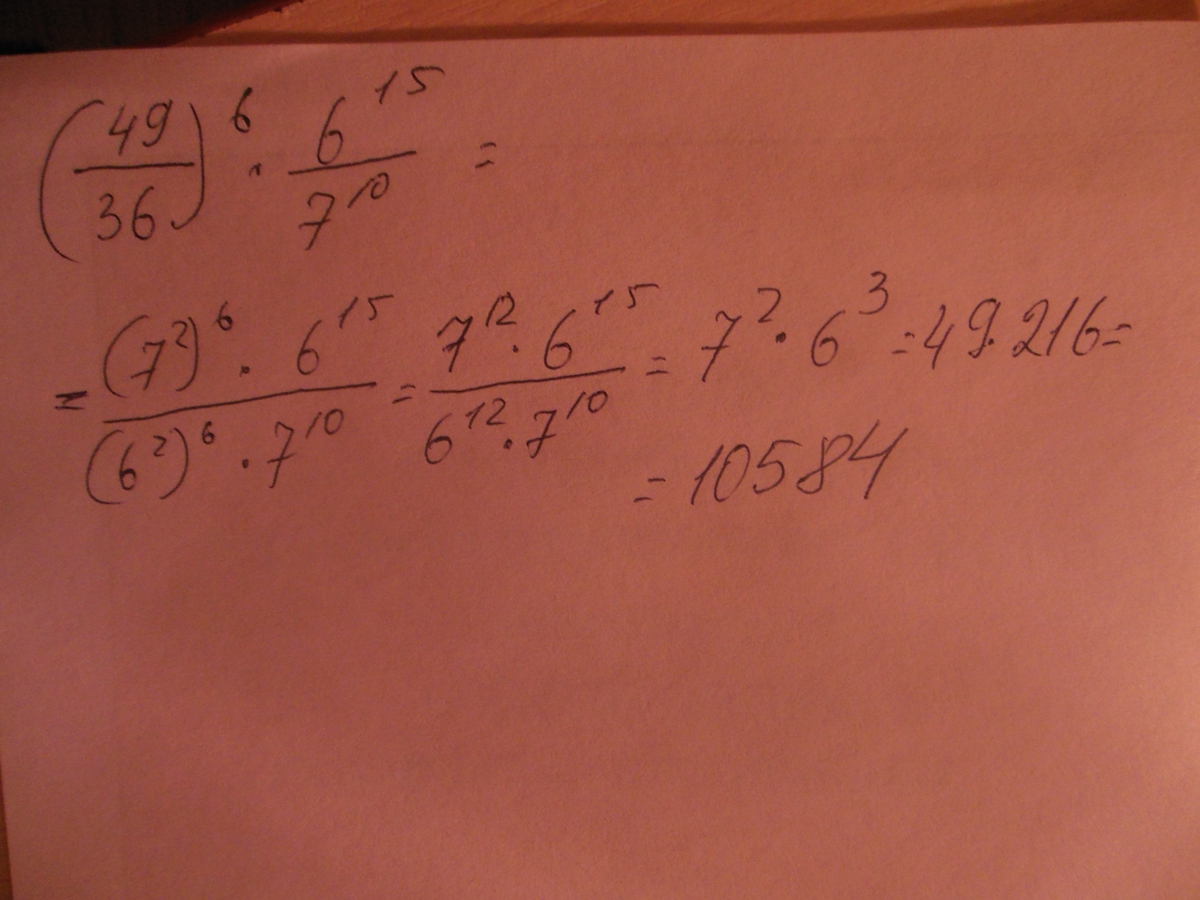 (49/36)^6 · 6^15/7^10 =
= (7^2)^6 · 6^15/(6^2)^6 · 7^10 = 7^12 · 6^15/6^12 · 7^10 = 7^2 · 6^3 = 49 · 216 =
= 10584